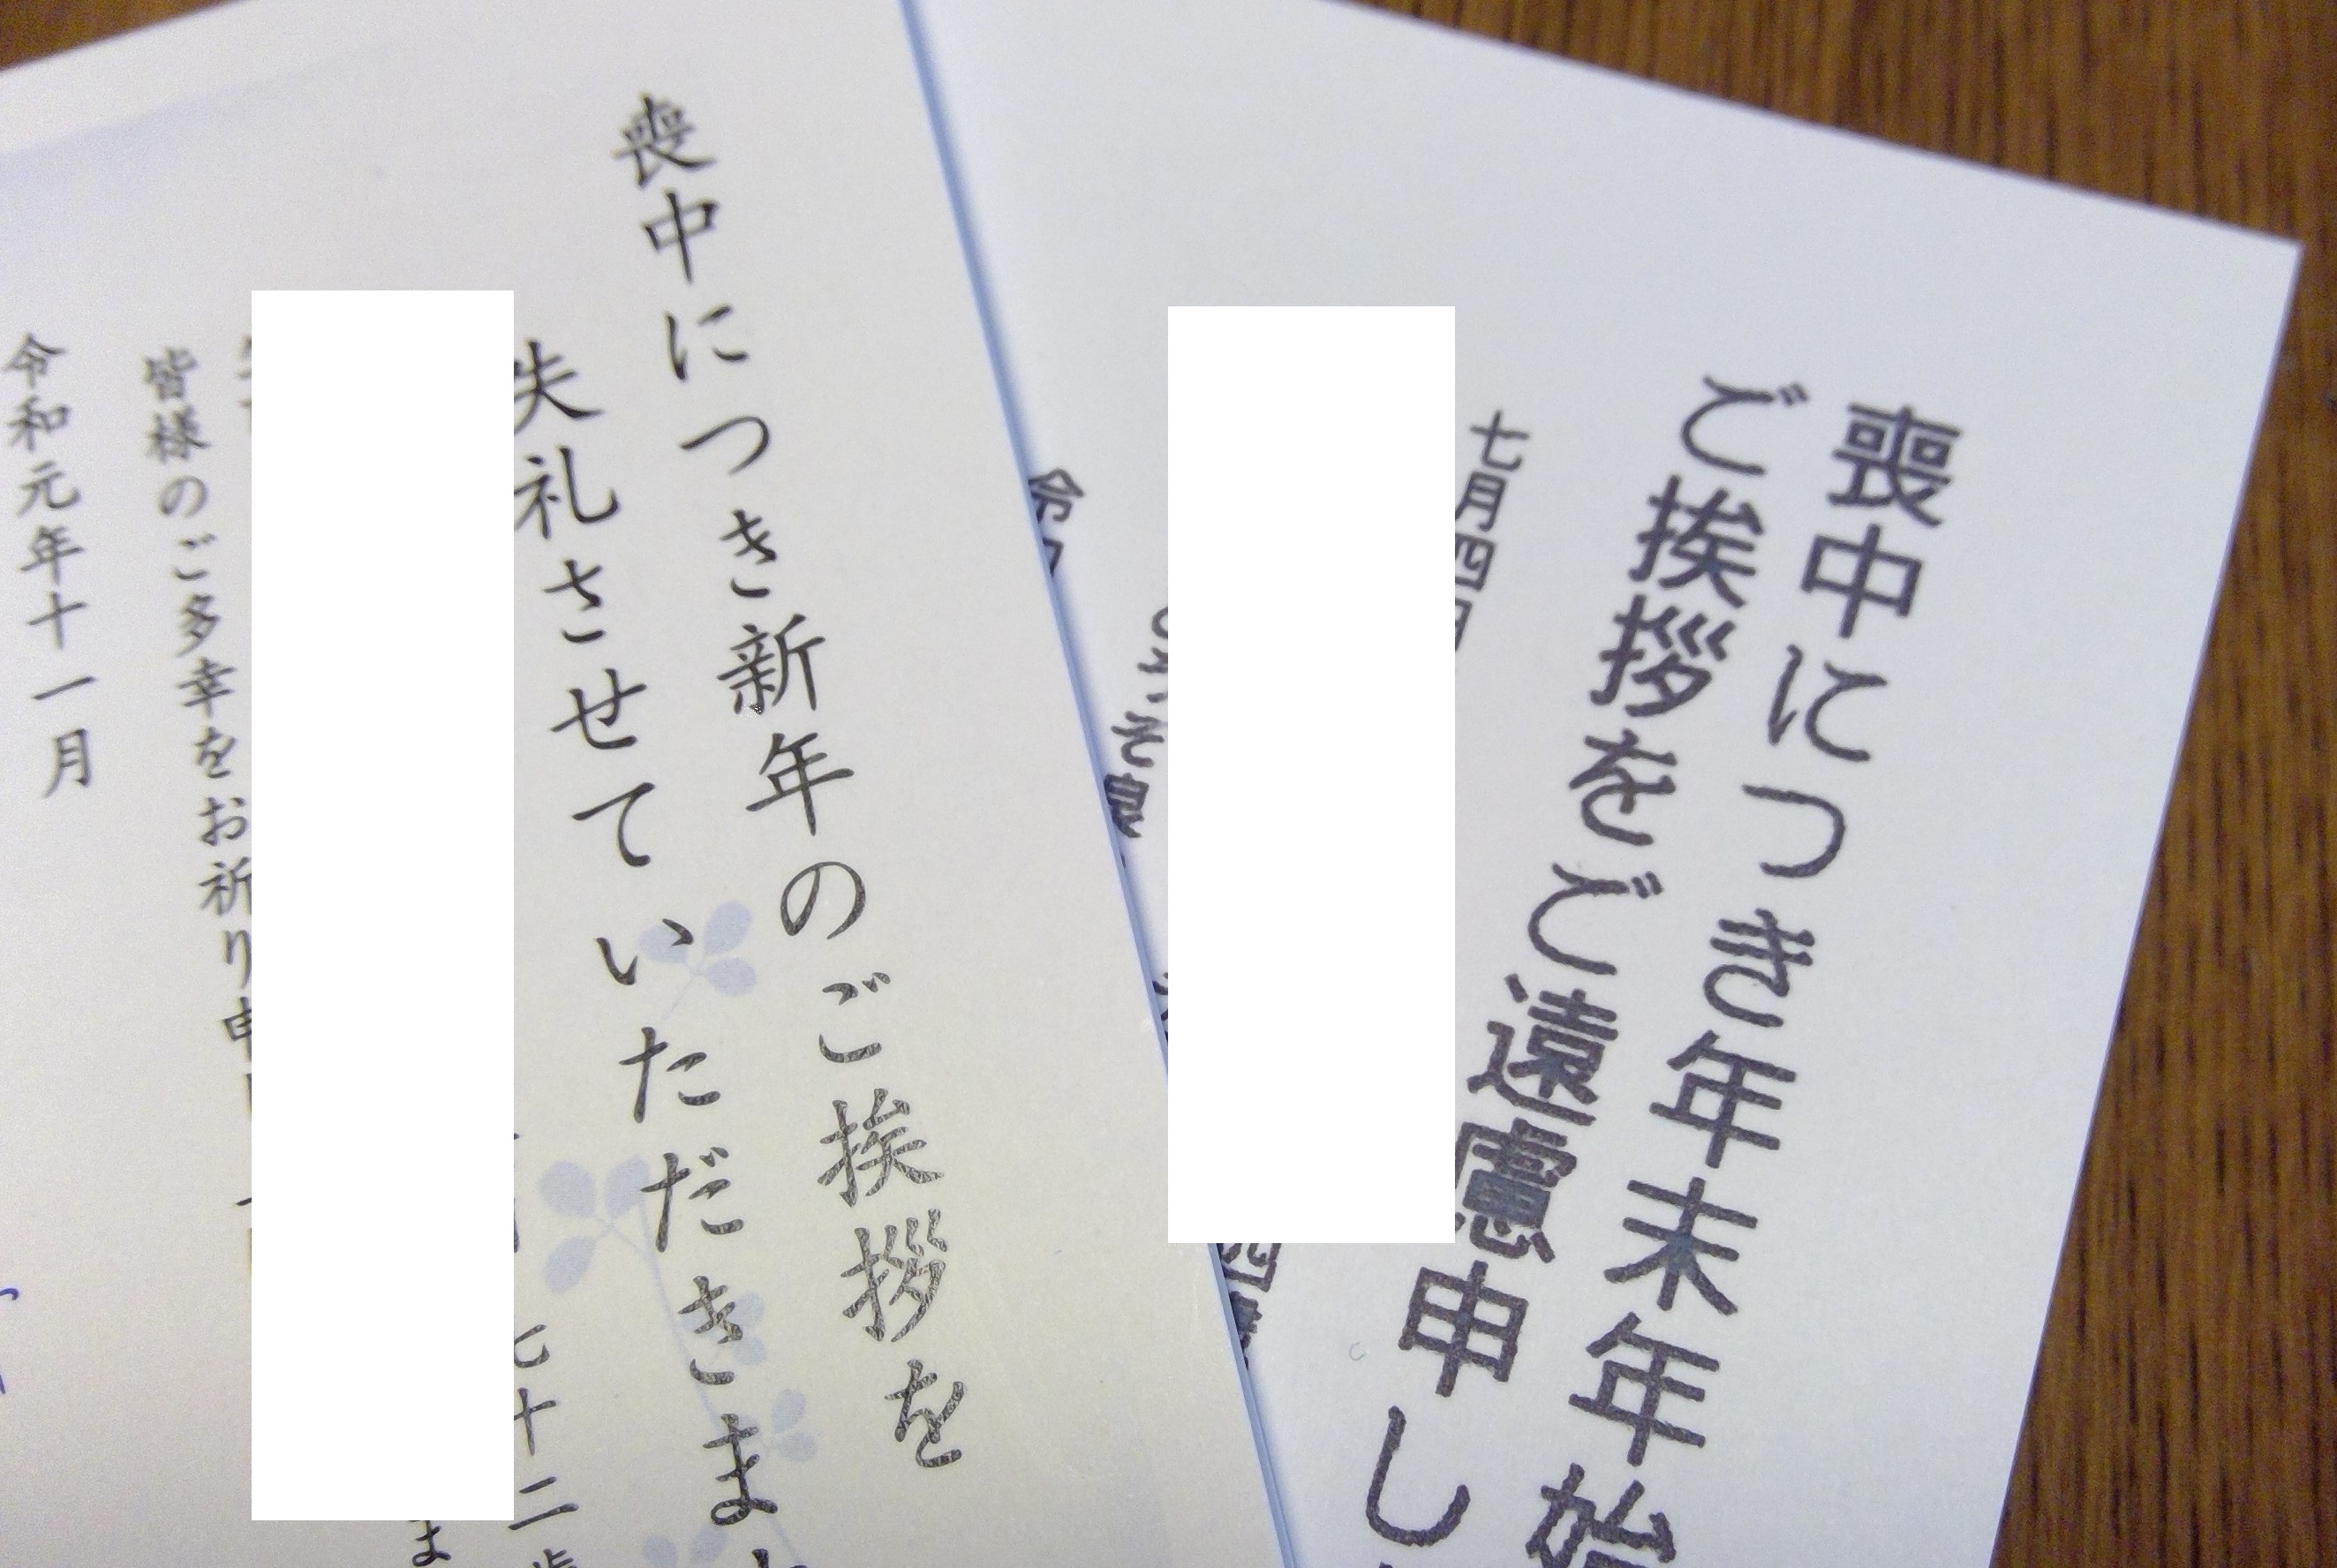 喪中につき新年のご挨拶を
失礼させていただきま
七十二歳
皆様のご多幸をお祈り申し
令和元年十一月
喪中につき年末年始
ご挨拶をご遠慮申し
七月四日